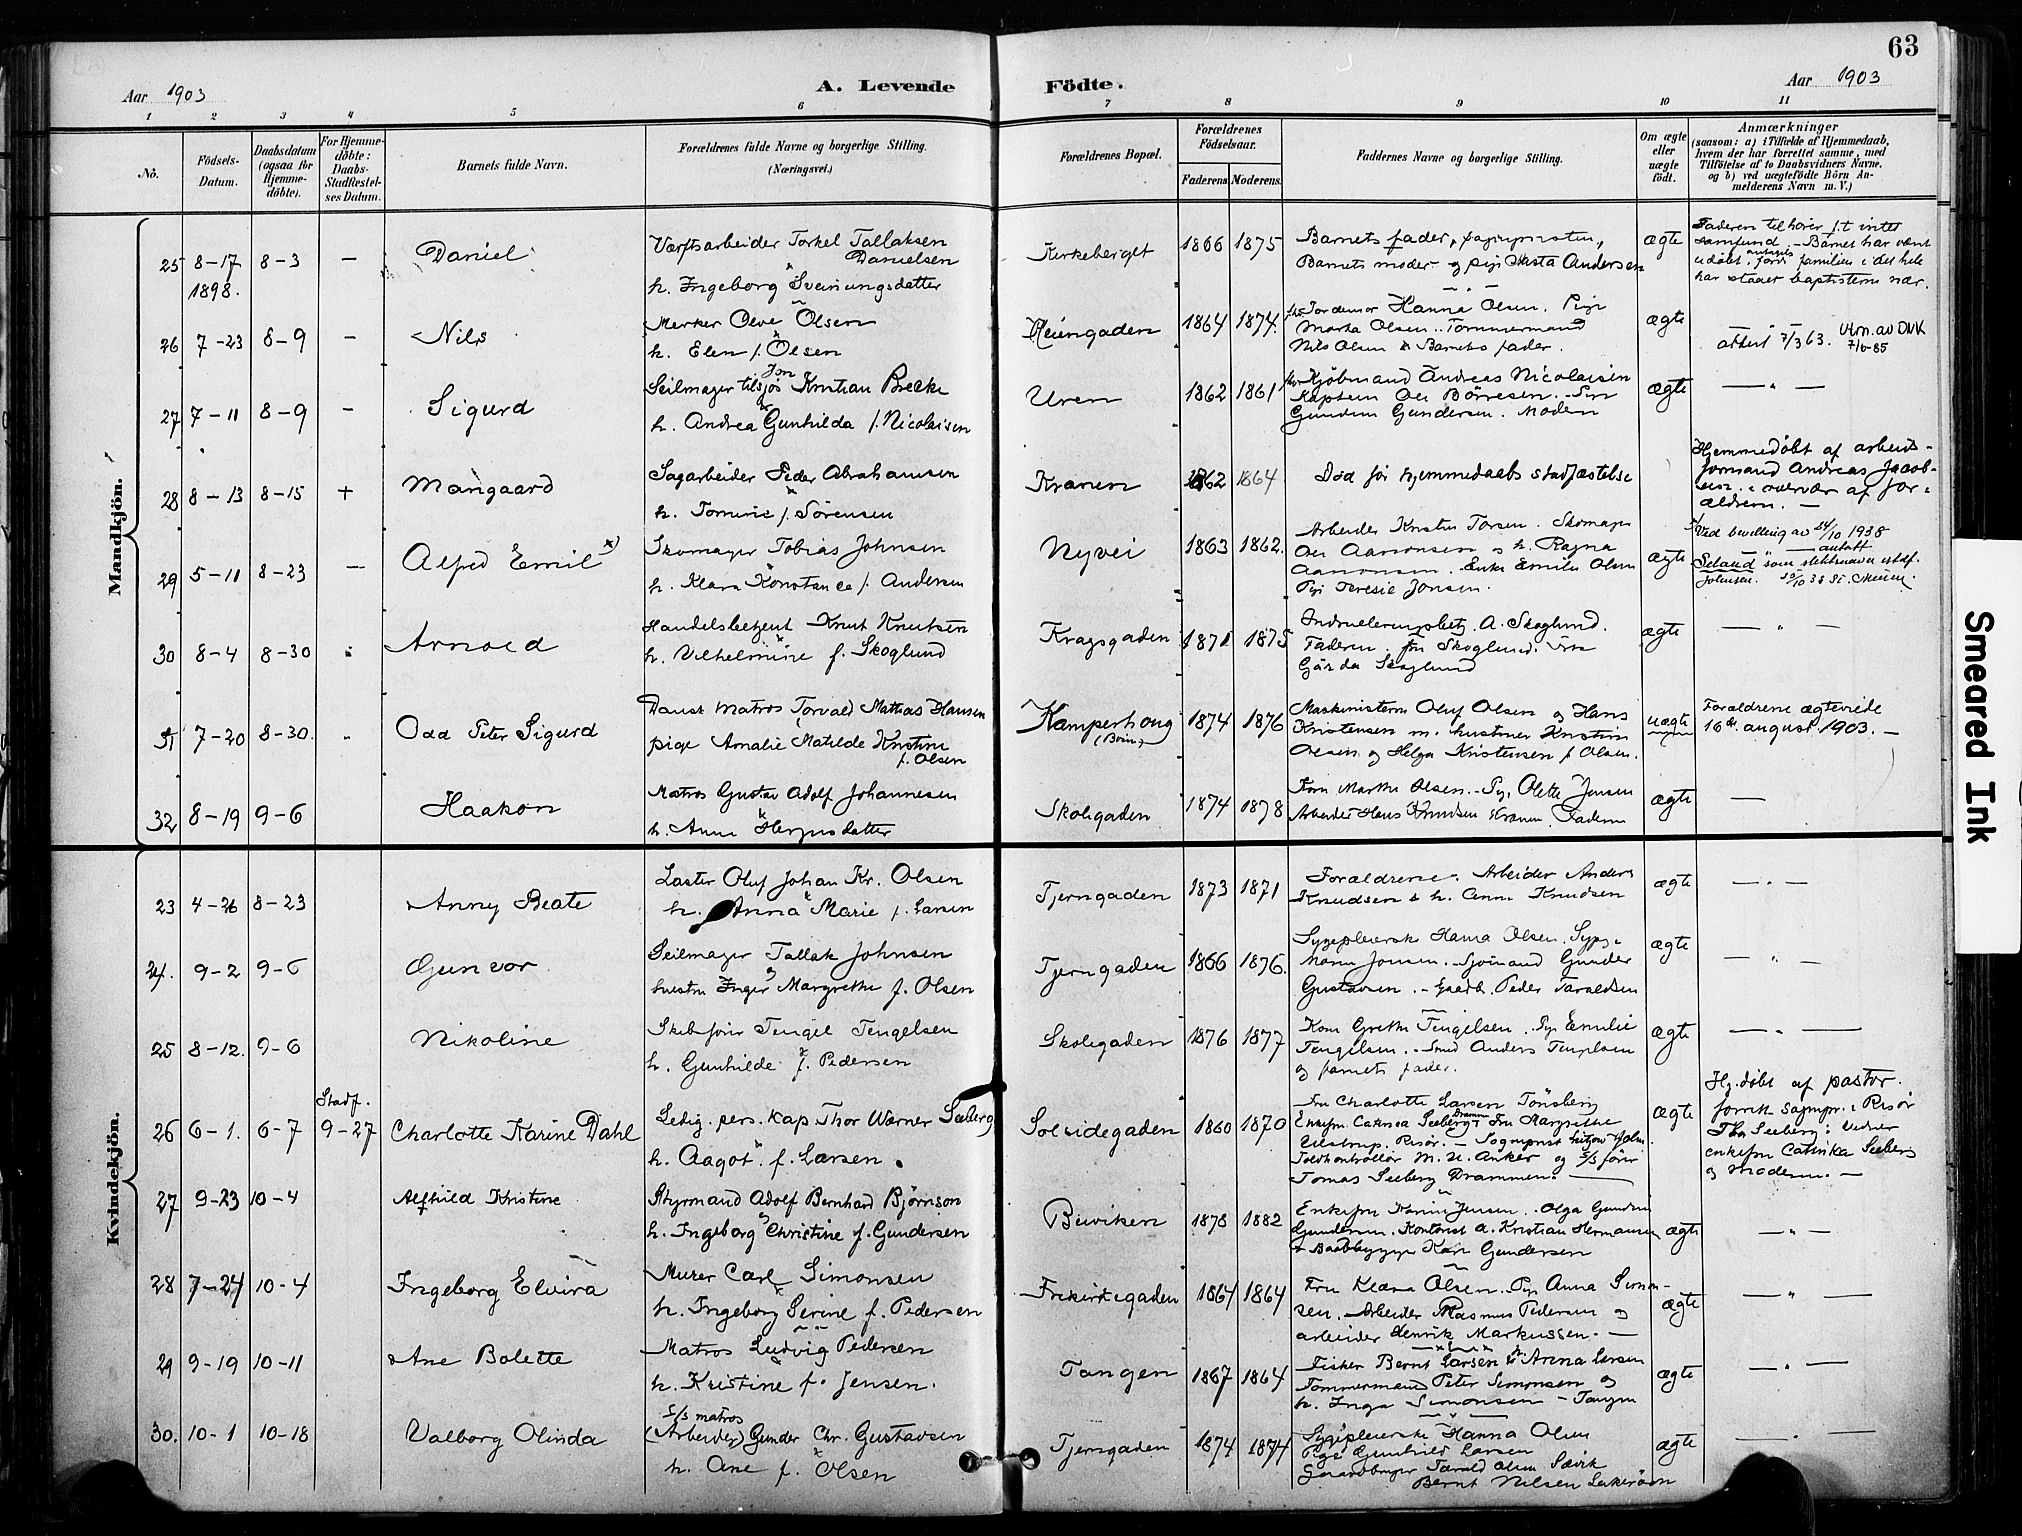 63
Aar 1903
A. Levende
Födte.
Aar 1903
1 2 3 4 5 6 7 8 9 10 11
No.
Födsels-Datum.
Daabsdatum (ogsaa for Hjemmedöbte).
For Hjemmedöbte: Daabs-Stadfestelses Datum.
Barnets fulde Navn.
Forældrenes fulde Navne og borgerlige Stilling.
(Næringsvei.)
Forældrenes Bopæl.
Forældrenes Födselsaar.
Faderens. Moderens.
Faddernes Navne og borgerlige Stilling.
Om ægte eller uægte födt.
Anmærkninger
(saasom: a) i Tilfælde af Hjemmedaab, hvem der har forrettet samme, med Tilföielse af to Daabsvidners Navne. og b) ved uægtefödte Börn Anmelderens Navn m. V.)
Mandkjön.
25 8-17 1898. 8-3 — Daniel
Værftsarbeider Torkel Tallaksen Danielsen
h. Ingeborg Sveinungsdatter
Kirkeberget 1866 1875
Barnets fader,
Barnets moder og pige Andersen
ægte
Faderen tilhører p.t intet
samfund. – Barnet har vært
udøbt, familien i det hele
har staaet baptisterne nær.
26 7-23 8-9 — Nils
Merker Olve Olsen
h. Elen f. Olsen
Heiengaden 1864 1874
Jordemor Hanna Olsen. Pige
Marta Olsen. Tømmermand
Nils Olsen & Barnets fader.
ægte
attest 7/3 63. Utm. av DNK
27 7-11 8-9 — Sigurd
Seilmager tilsjøs Kristian Brekke
h. Andrea Gunhilda f. Nicolaisen
Uren 1862 1861
Kjøbmand Andreas Nicolaisen
Kaptein Børresen.
Gundersen. Modern
ægte — " —
28 8-13 8-15 + Mangaard
Sagarbeider Peder Abrahamsen
h. Tomine f. Sørensen
Kranen 1862 1864
Død før hjemmedaabs stadfæstelse
Hjemmedøbt af arbeids-
formand Andreas Jacob-
sen i overvær af for-
ældrene. —
29 5-11 8-23 — Alfred Emil x)
Skomager Tobias Johnsen
h. Klara Konstance f. Andersen
Nyvei 1863 1862.
Arbeider Kristen Torsen. Skomager
Aanonsen & h. Ragna
Aanonsen. Enke Emilie Olsen
Pige Teresie Jonsen.
ægte
x) Ved bevilling av 24/10 1938
antatt
Seland som slektsnavn istdf.
Johnsen.
30 8-4 8-30 Arnold
Handelsbetjent Knut Knutsen
h. Vilhelmine f. Skoglund
Kragsgaden 1871 1875
A. Skoglund.
Faderen. frk Skoglund.
Skoglund
ægte — " —
31 7-20 8-30. Odd Peter Sigurd
Dansk matros Torvald Mathias Hansen
pige Amalie Matilde Kristine
f. Olsen
Kamperhoug
1874 1876
Maskinisterne Oluf Olsen og Hans
Kristensen m. hustruer Kristine
Olsen og Helga Kristensen f. Olsen.
uægte
Forældrene ægteviede
16de august 1903. —
32 8-19 9-6 Haakon
Matros Gustav Adolf Johannesen
h. Anne Hergusdatter
Skolegaden 1874 1878
Kone Marthe Olsen. Pige Olette Jensen
Arbeider Hans Knudsen Kranen. Faderen
ægte —
Kvindekjön.
23 4-26 8-23 Anny Beate
Laster Oluf Johan Kr. Olsen
h. Anna Marie f. Larsen
Tjerngaden 1873 1871
Forældrene. Arbeider Anders
Knudsen & h. Anne Knudsen
ægte — " —
24. 9-2 9-6 Gunvor
Seilmager Tallak Johnsen
hustru Inger Margrethe f. Olsen
Tjerngaden 1866 1876.
Sygepleierske Hanna Olsen.
Jonsen. Sjømand Gunder
Gustavsen. – Gaardb. Peder Taraldsen
ægte — " —
25 8-12. 9-6 Nikoline
Skibsfører Tengel Tengelsen
h. Gunhilde f. Pedersen
Skolegaden 1876 1877
Kone Grethe Tengelsen. Pige Emilie
Tengelsen. Smed Anders Tengelsen
og barnets fader.
ægte — " —
26 6-1. 6-7 Stadf. 9-27 Charlotte Karine Dahl
Ledig. pers. kap Thor Werner Seeberg
h. Aagot. f. Larsen.
Solsidegaden 1860 1870
Fru Charlotte Larsen Tönsberg
Enkefru Catrica Seeberg Drammen Fru Margrethe
Risør. – Sogneprest
Toldkontrollør M. U. Anker og S/S fører
Tomas Seeberg Drammen. —
ægte
Hj.døbt af pastor.
Sognepr. i Risør
Seeberg: Vidner
enkefru Catrika Seeberg
og Moderen. —
27 9-23 10-4 Alfhild Kristine
Styrmand Adolf Bernhard Bjørnson
h. Ingeborg Christine f. Gundersen
Buviken 1878 1882
Enkefru Karin Jensen. Olga Gundrine
Gundersen. Kontorist A. Kristian Hermansen
& Baadbygger Karl Gundersen
ægte — " —
28 7-24 10-4 Ingeborg Elvira
Murer Carl Simonsen
h. Ingeborg Serine f. Pedersen
Frikirkegaden 1864 1864
Fru Klara Olsen. Pige Anna Simon-
sen. Arbeider Rasmus Pedersen og
arbeider Henrik Markussen. —
ægte — " —
29 9-19 10-11 Ane Bolette
Matros Ludvig Pedersen
h. Kristine f. Jensen.
Tangen 1867 1864
Fisker Bernt Larsen & h. Anna Larsen
Tømmermand Peter Simonsen og
h. Inga Simonsen – Tangen
ægte — " —
30. 10-1 10-18 Valborg Olinda
S/S matros
(Arbeider) Gunder Chr. Gustavsen
h. Ane f. Olsen
Tjerngaden 1874 1874
Sygepleierske Hanna Olsen
Pige Gunhild Larsen
Gaardbruger Tarald Olsen Sævik
Bernt Nilsen
ægte — " —
Smeared Ink